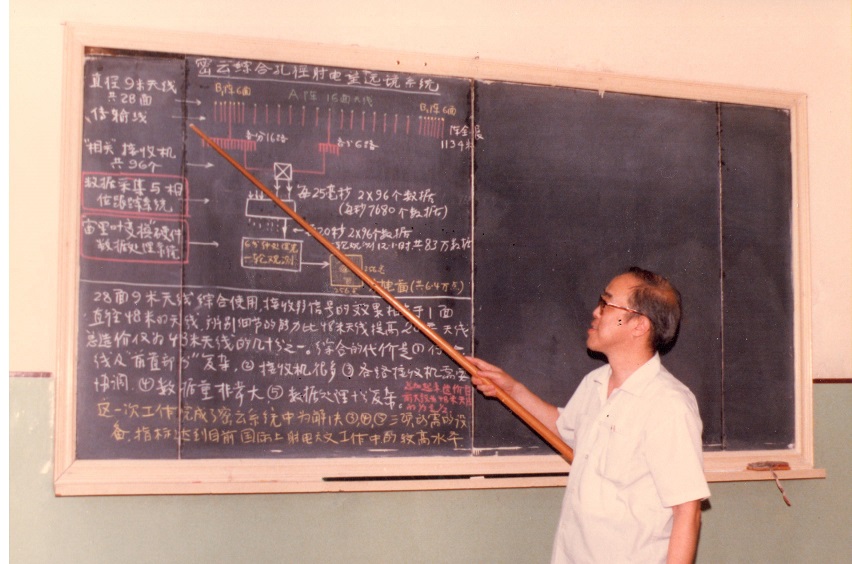 密云综合孔径射电望远镜系统
直径9米天线
共28面
传输线
"相关"接收机
共96个
数据采集与相
位跟踪系统
硬件
数据处理系统
B₁阵6面
A阵16面天线
B₂阵6面
阵全长
1134米
各分16路
各分6路
每25毫秒 2×96个数据
(每秒7680个数据)
20秒 2×96个数据
12小时共83万数据
一轮观测
28面9米天线综合使用,接收射电信号的效果相当于1面
直径48米的天线,辨别细节的能力比48米天线提高 天线
总造价仅为48米天线的几十分之一。综合的代价是①
线及"前置部分"复杂。②接收机很多③各路接收机需要
协调。④数据量非常大⑤数据处理
复杂。
这一次工作完成了密云系统中为解决③,④,⑤三项 的设
备,指标达到目前国际上射电天文工作中的较高水平